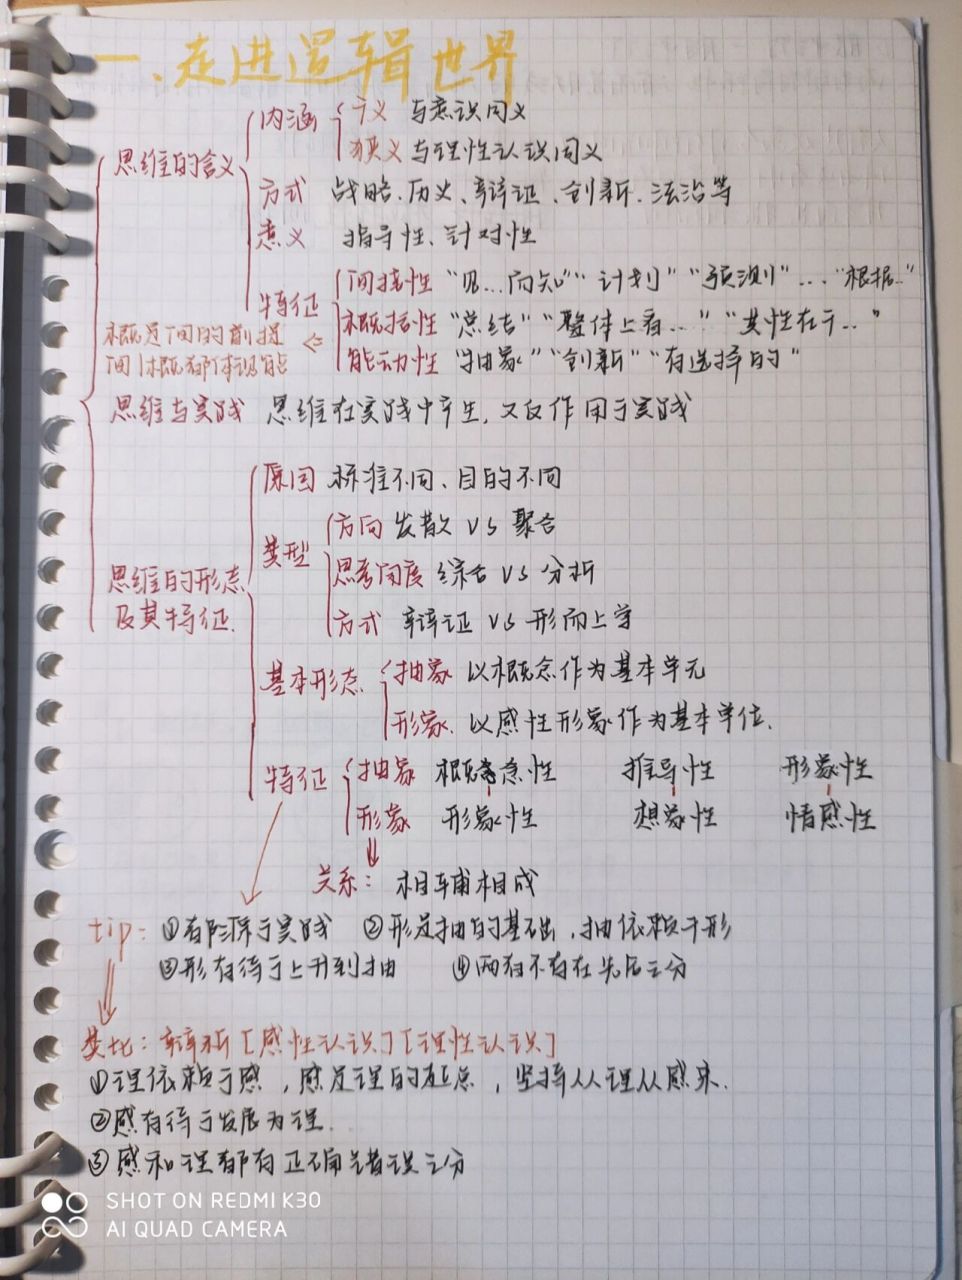 一、走进逻辑世界
思维的含义
内涵 广义 与意识同义
狭义 与理性认识同义
方式 战略、历史、辩证、创新、法治等
意义 指导性、针对性
特征 间接性 “见…而知” “计划” “预测” … “根据…”
概括性 “总结” “整体上看…” “共性在于…”
能动性 “抽象” “创新” “有选择的”
概是间的前提
间|概都体现能
思维与实践 思维在实践中产生,又反作用于实践
思维的形态
及其特征
原因 标准不同、目的不同
类型 方向 发散 VS 聚合
思考角度 综合 VS 分析
方式 辩证 VS 形而上学
基本形态 抽象 以概念作为基本单元
形象 以感性形象作为基本单位.
特征 抽象 概念性 推导性 形象性
形象 形象性 想象性 情感性
关系: 相辅相成
tip: ①都源于实践 ②形是抽的基础,抽依赖于形
③形有待于上升到抽 ④两者不存在先后之分
类比: 辩析[感性认识][理性认识]
①理依赖于感,感是理的起点,坚持从理从感来.
②感有待于发展为理.
③感和理都有正确错误之分
SHOT ON REDMI K30
AI QUAD CAMERA